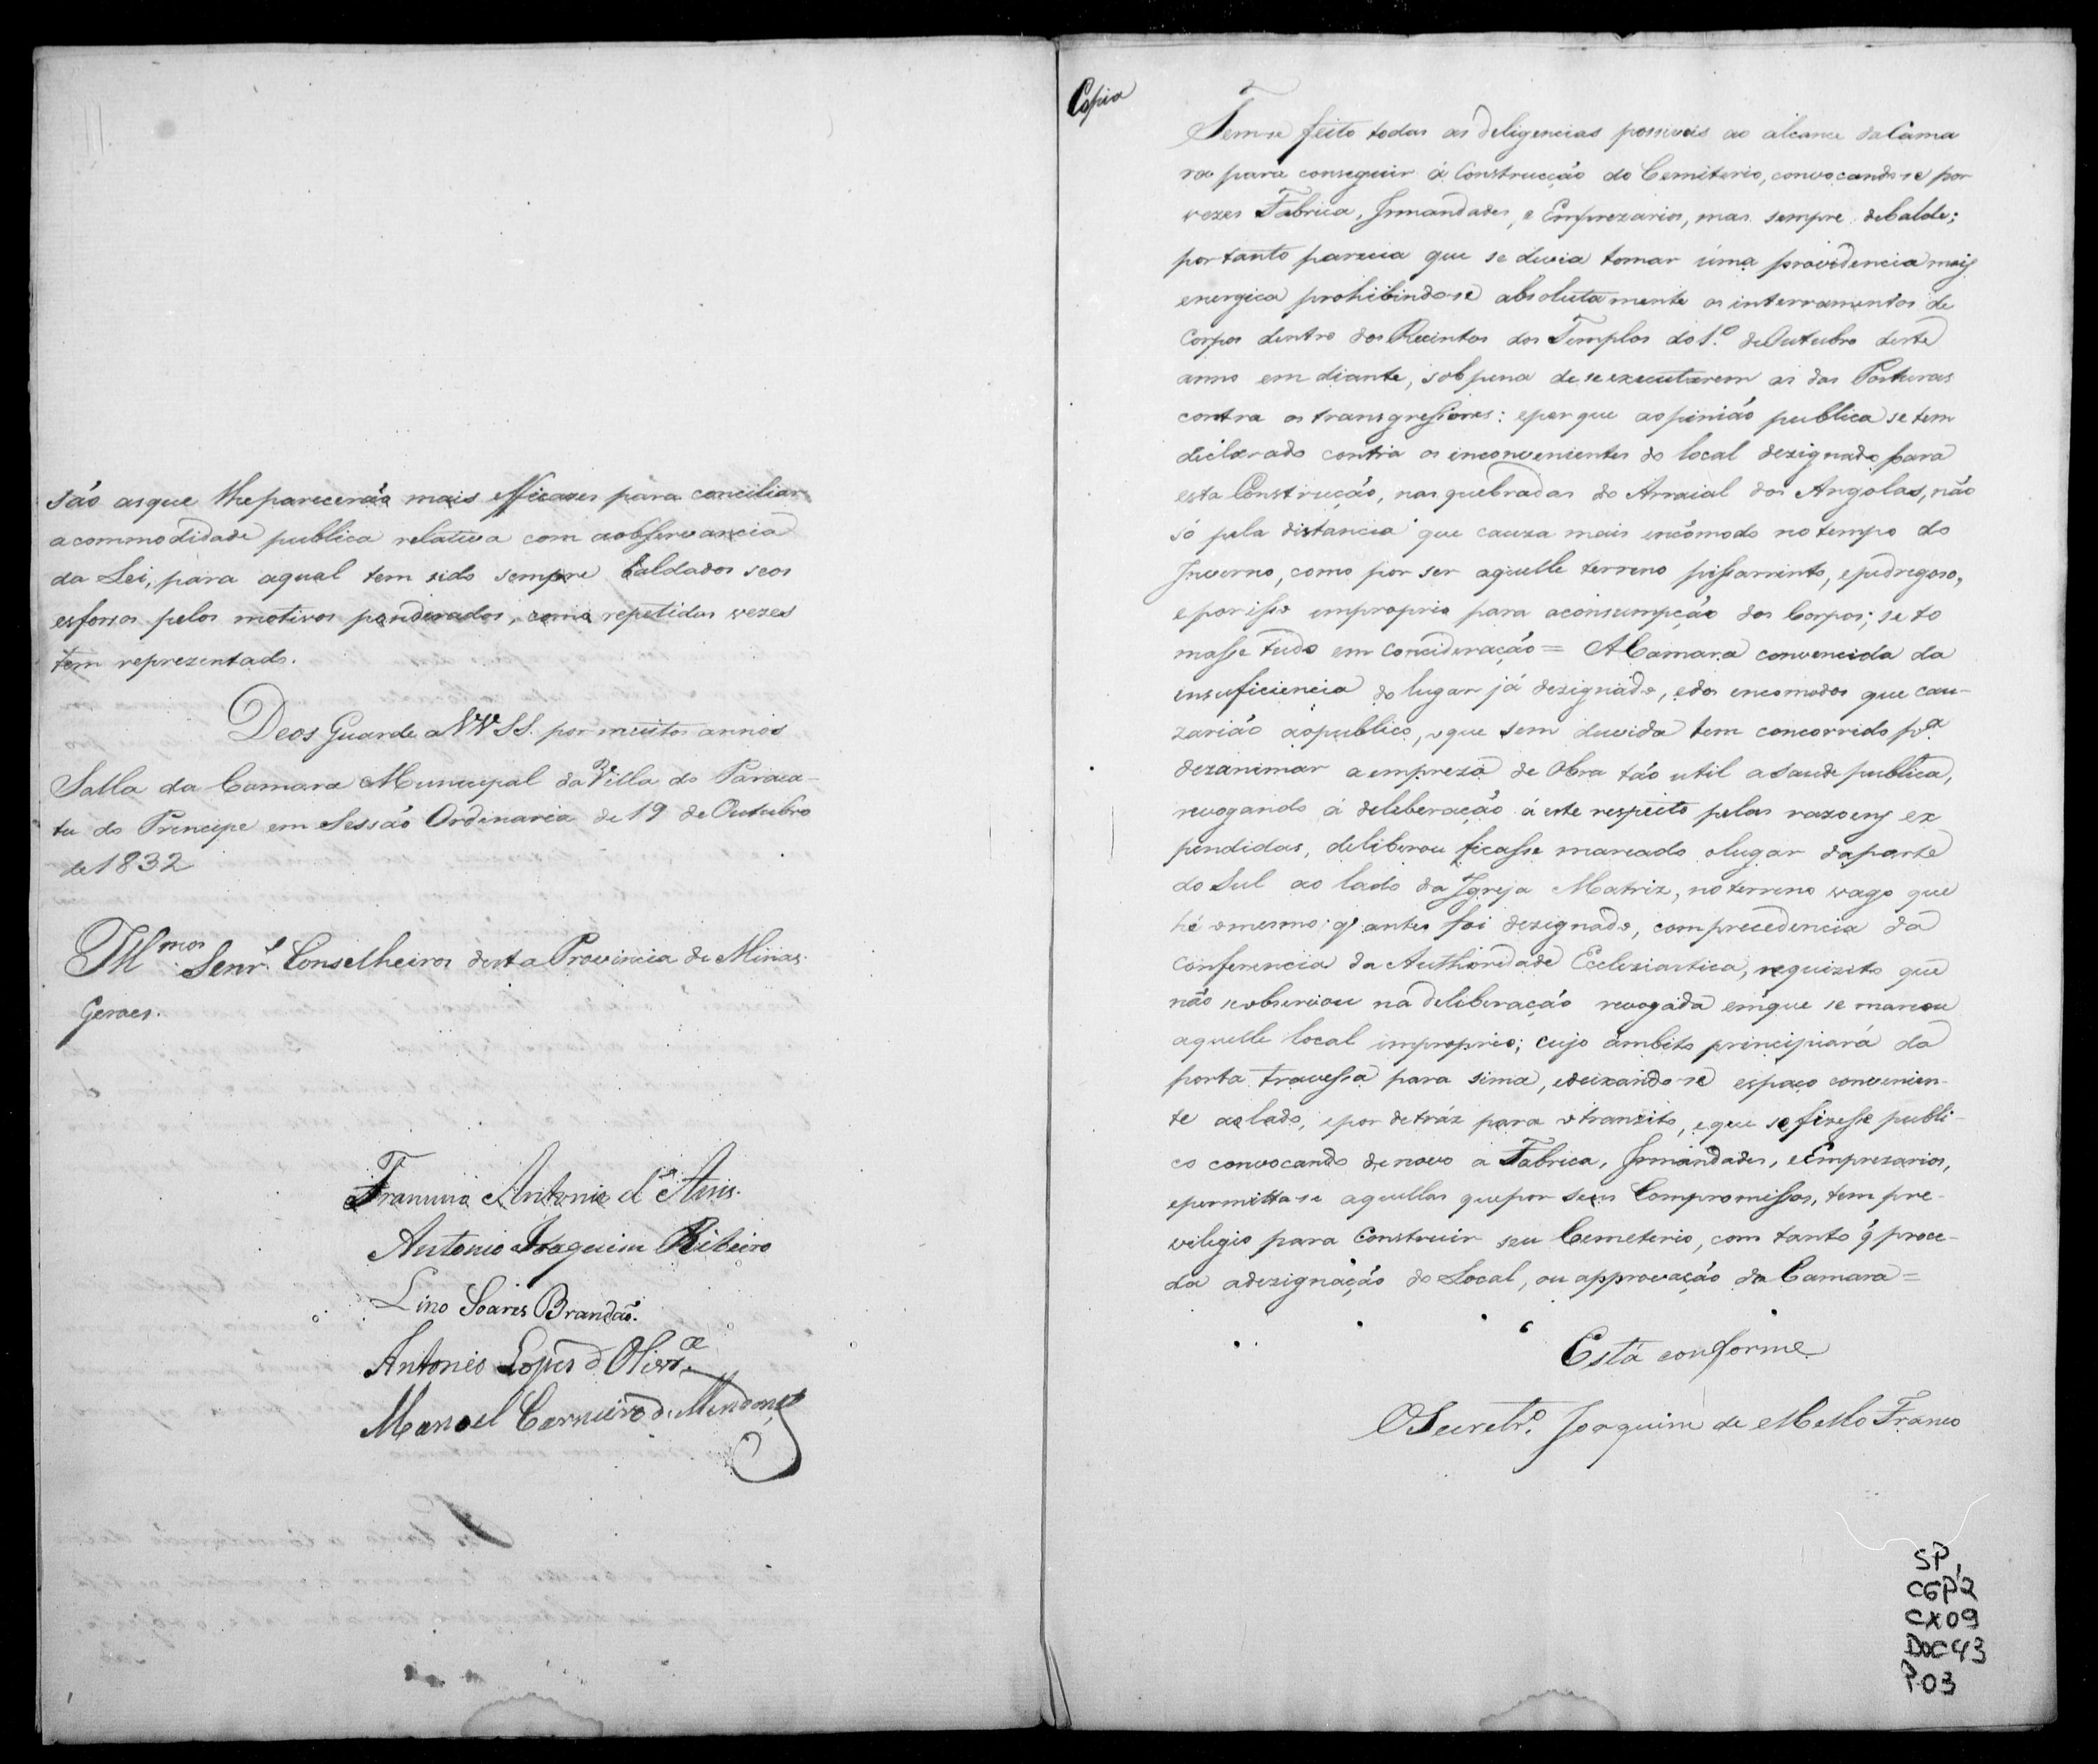 são as que lhe parecerão mais efficazes para conciliar
a commodidade publica relativa com a observancia
da Lei, para a qual tem sido sempre baldados seos
esforsos pelos motivos ponderados, como repetidas vezes
tem reprezentado.
Deos Guarde a VV SS. por muitos annos
Salla da Camara Municipal da Villa do Paraca-
tu do Principe em Sessão Ordinaria de 19 de Outubro
de 1832
Illmos. Senrs. Conselheiros desta Provincia de Minas
Geraes.
Antonio d'
Antonio Joaquim Ribeiro
Lino Soares Brandão.
Antonio Lopes d' Olivra.
Manoel Carneiro de Mendonça
Copia
Tem-se feito todas as deligencias possiveis ao alcance da Cama
ra para conseguir á Construcção do Cemiterio, convocando-se por
vezes Fabrica, Irmandades, e Emprezarios, mas sempre debalde;
por tanto parecia que se devia tomar uma providencia mais
energica prohibindo-se absolutamente os interramentos de
Corpos dentro dos Recintos dos Templos do 1.º de Outubro deste
anno em diante, sob pena de se executarem as das Posturas
contra os transgressores: e por que a opinião publica se tem
declarado contra os inconvenientes do local dezignado para
esta Construção, nas quebradas do Arraial dos Angolas, não
só pela distancia que cauza mais encómodo no tempo do
Inverno, como por ser aquelle terreno pissarrento, e pedregoso,
e por isso improprio para a consumpção dos Corpos; se to
masse tudo em concideração = A Camara convencida da
insuficiencia do lugar já dezignado, e dos encomodos que cau-
zarião ao publico, o que sem duvida tem concorrido pa.
dezanimar a empreza de Obra tão util a saude publica,
revogando á deliberação á este respeito pelas razoens ex
pendidas, deliberou ficasse marcado o lugar da parte
do Sul ao lado da Igreja Matriz, no terreno vago que
hé o mesmo q' antes foi dezignado, com precedencia da
Conferencia da Authoridade Ecleziastica, requizito que
não se observou na deliberação revogada em que se marcou
aquelle local improprio; cujo ámbito principiará da
porta travessa para sima, e deixando-se espaço convenien-
te ao lado, e por detráz para o tranzito, e que se fizesse publi-
co convocando de novo a Fabrica, Irmandades, e Emprezarios,
e permitta-se aquellas que por seus Compromissos, tem pre-
vilegio para Construir seu Cemeterio, com tanto q' proce-
da a dezignação do Local, ou approvação da Camara =
Está conforme
O Secretr.º Joaquim de Mello Franco
SP
CGP¹2
CX09
DOC 43
P.03